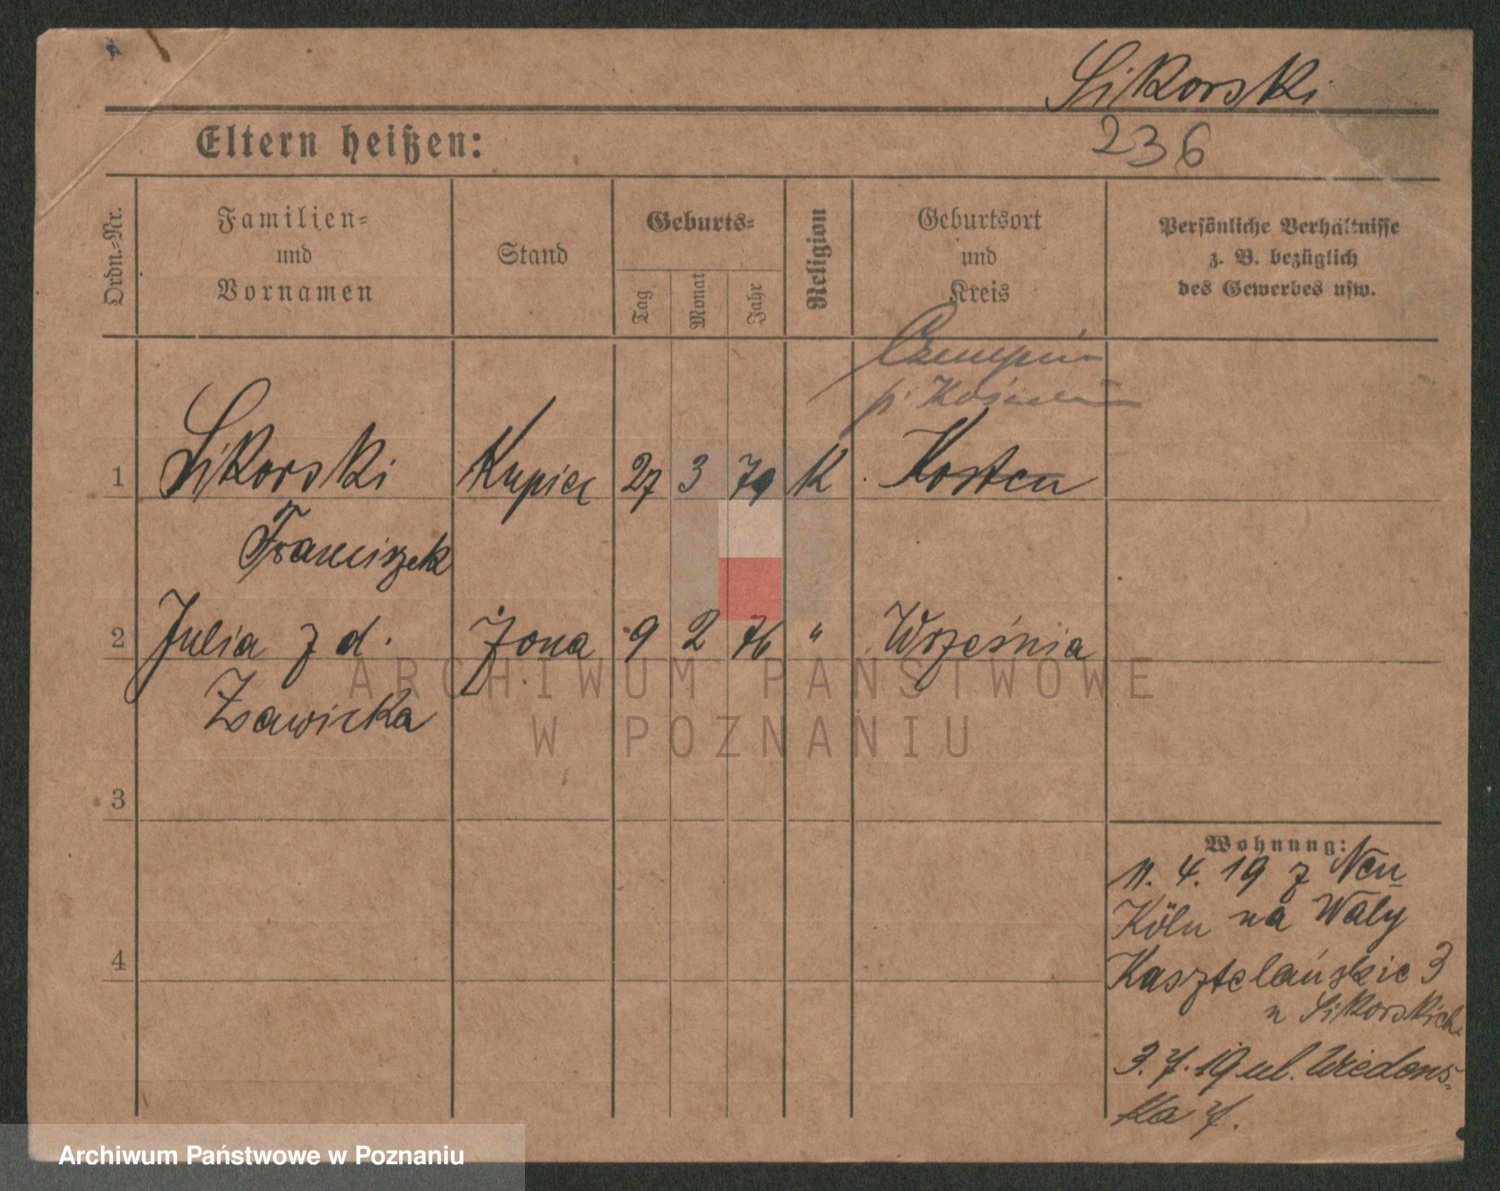 Sikorski
236
Eltern heißen:
Ordn.-Nr.
Familien-
und
Vornamen
Stand
Geburts-
Tag
Monat
Jahr
Religion
Geburtsort
und
Kreis
Persönliche Verhältnisse
z. B. bezüglich
des Gewerbes usw.
Czempiń
p. Kościan
1 Sikorski Kupiec 27 3 79 K Kosten
Franciszek
2 Julia z d. Żona 9 2 76 " Września
Zsawicka
3
4
Wohnung:
11. 4. 19 z Neu
Köln na Wały
Kasztelańskie 3
u Sikorskich
3. 7. 19 ul. Wiedeńs-
ka 7.
ARCHIWUM PAŃSTWOWE
W POZNANIU
Archiwum Państwowe w Poznaniu